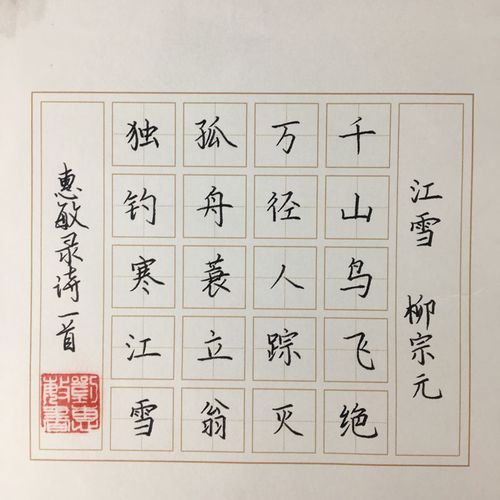 江雪 柳宗元
千山鸟飞绝
万径人踪灭
孤舟蓑立翁
独钓寒江雪
惠敏录诗一首
劉惠敏書